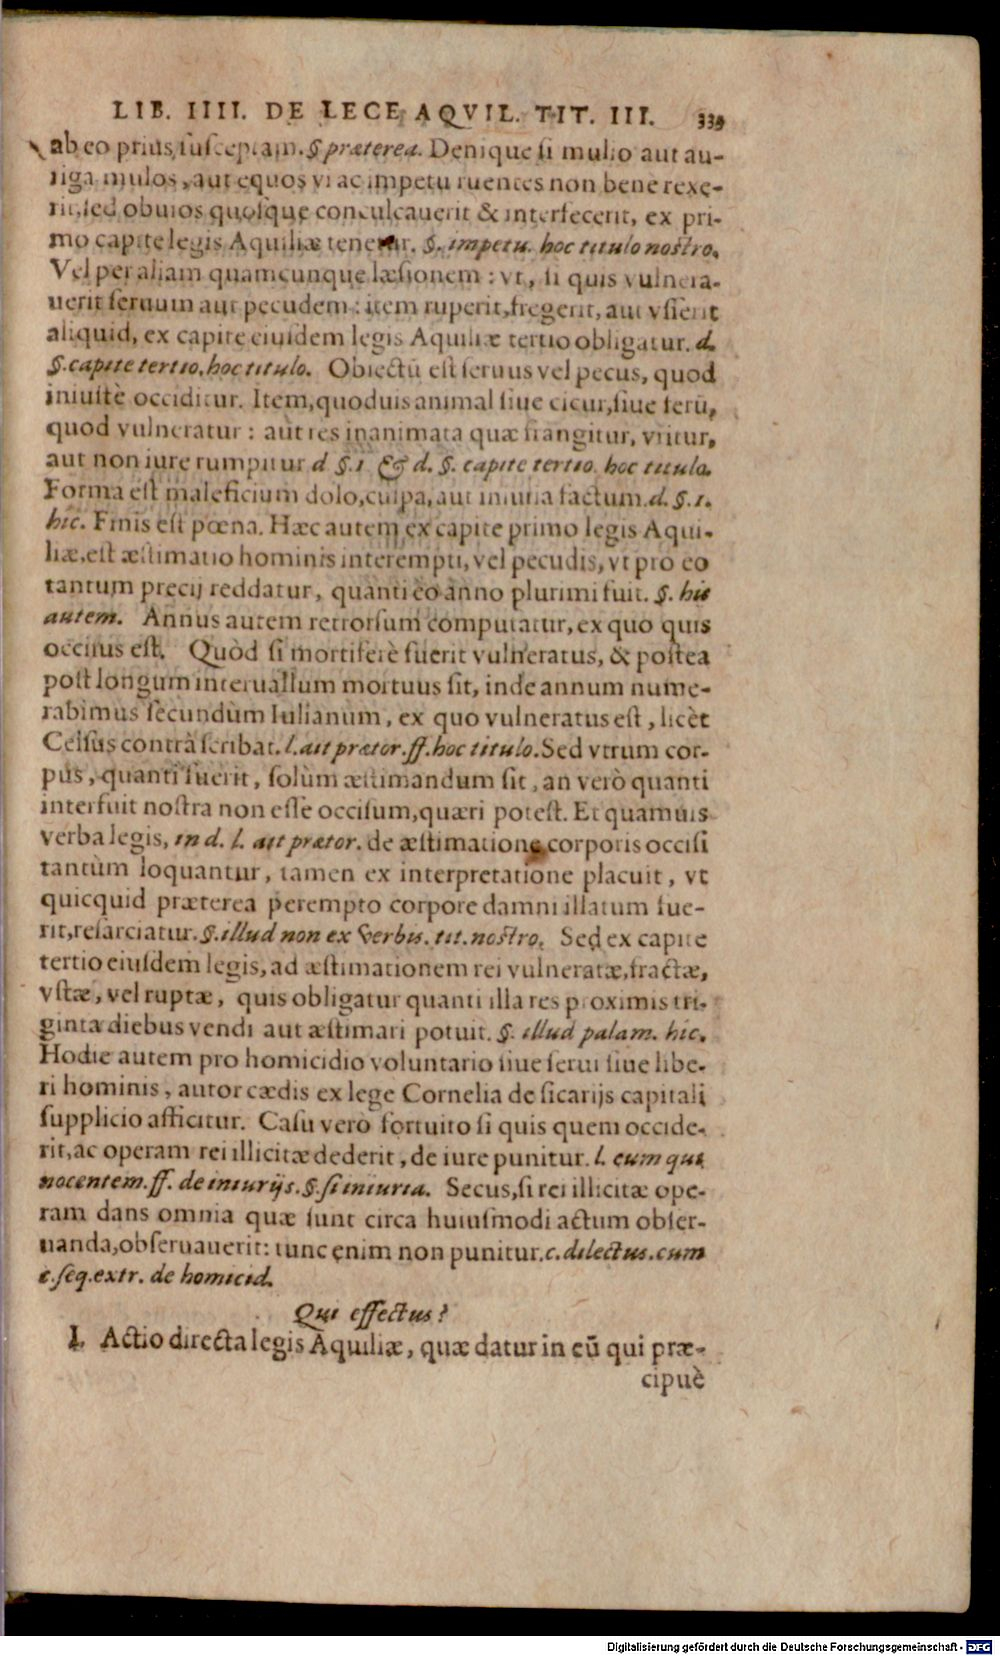 LIB. IIII. DE LECE AQVIL. TIT. III. 339
ab eo prius susceptam. §præterea. Denique si mulio aut au-
riga mulos, aut equos vi ac impetu ruentes non bene rexe-
rit, sed obuios quosque conculcauerit & interfecerit, ex pri-
mo capite legis Aquiliæ tenetur. §. impetu. hoc titulo nostro.
Vel per aliam quamcunque læsionem: vt, si quis vulnera-
uerit seruum aut pecudem: item ruperit, fregerit, aut vsserit
aliquid, ex capite eiusdem legis Aquiliæ tertio obligatur. d.
§. capite tertio. hoc titulo. Obiectū est seruus vel pecus, quod
iniustè occiditur. Item, quoduis animal siue cicur, siue ferū,
quod vulneratur: aut res inanimata quæ frangitur, vritur,
aut non iure rumpitur d §.1 & d. §. capite tertio. hoc titulo.
Forma est maleficium dolo, culpa, aut iniuria factum. d. §.1.
hic. Finis est pœna. Hæc autem ex capite primo legis Aqui-
liæ, est æstimatio hominis interempti, vel pecudis, vt pro eo
tantum precij reddatur, quanti eo anno plurimi fuit. §. his
autem. Annus autem retrorsum computatur, ex quo quis
occisus est. Quòd si mortiferè fuerit vulneratus, & postea
post longum interuallum mortuus sit, inde annum nume-
rabimus secundùm Iulianum, ex quo vulneratus est, licèt
Celsus contrà scribat. l. ait prætor. ff. hoc titulo. Sed vtrum cor-
pus, quanti fuerit, solùm æstimandum sit, an verò quanti
interfuit nostra non esse occisum, quæri potest. Et quamuis
verba legis, in d. l. ait prætor. de æstimatione corporis occisi
tantùm loquantur, tamen ex interpretatione placuit, vt
quicquid præterea perempto corpore damni illatum fue-
rit, resarciatur. §. illud non ex verbis. tit. nostro. Sed ex capite
tertio eiusdem legis, ad æstimationem rei vulneratæ, fractæ,
vstæ, vel ruptæ, quis obligatur quanti illa res proximis tri-
ginta diebus vendi aut æstimari potuit. §. illud palam. hic.
Hodie autem pro homicidio voluntario siue serui siue libe-
ri hominis, autor cædis ex lege Cornelia de sicarijs capitali
supplicio afficitur. Casu verò fortuito si quis quem occide-
rit, ac operam rei illicitæ dederit, de iure punitur. l. eum qui
nocentem. ff. de iniurijs. §. si iniuria. Secus, si rei illicitæ ope-
ram dans omnia quæ sunt circa huiusmodi actum obser-
uanda, obseruauerit: tunc enim non punitur. c. dilectus. cum
c. seq. extr. de homicid.
Qui effectus?
I. Actio directa legis Aquiliæ, quæ datur in eū qui præ-
cipuè
Digitalisierung gefördert durch die Deutsche Forschungsgemeinschaft - DFG